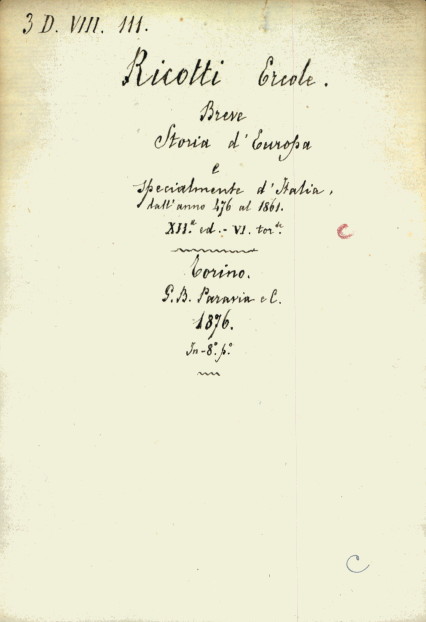 3 D. VIII. 111.
Ricotti Ercole.
Breve
Storia d'Europa
e
specialmente d'Italia,
dall'anno 476 al 1861.
XII.ª ed. - VI. tor.se
Torino.
G. B. Paravia e C.
1876.
In-8.º p.º
C
C